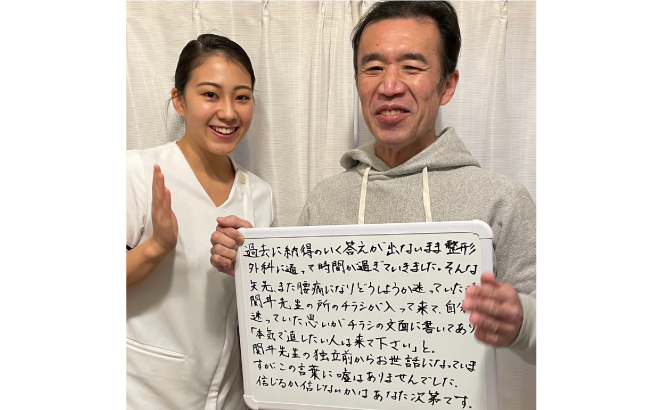 過去に納得のいく答えが出ないまま整形
外科に通って時間が過ぎていきました。そんな
矢先、また腰痛になりどうしようか迷っていた
関井先生の所のチラシが入って来て、自分
迷っていた思いがチラシの文面に書いてあり
「本気で直したい人は来て下さい」と。
関井先生の独立前からお世話になっていま
すが、この言葉に嘘はありませんでした。
信じるか信じないかは あなた次第です。